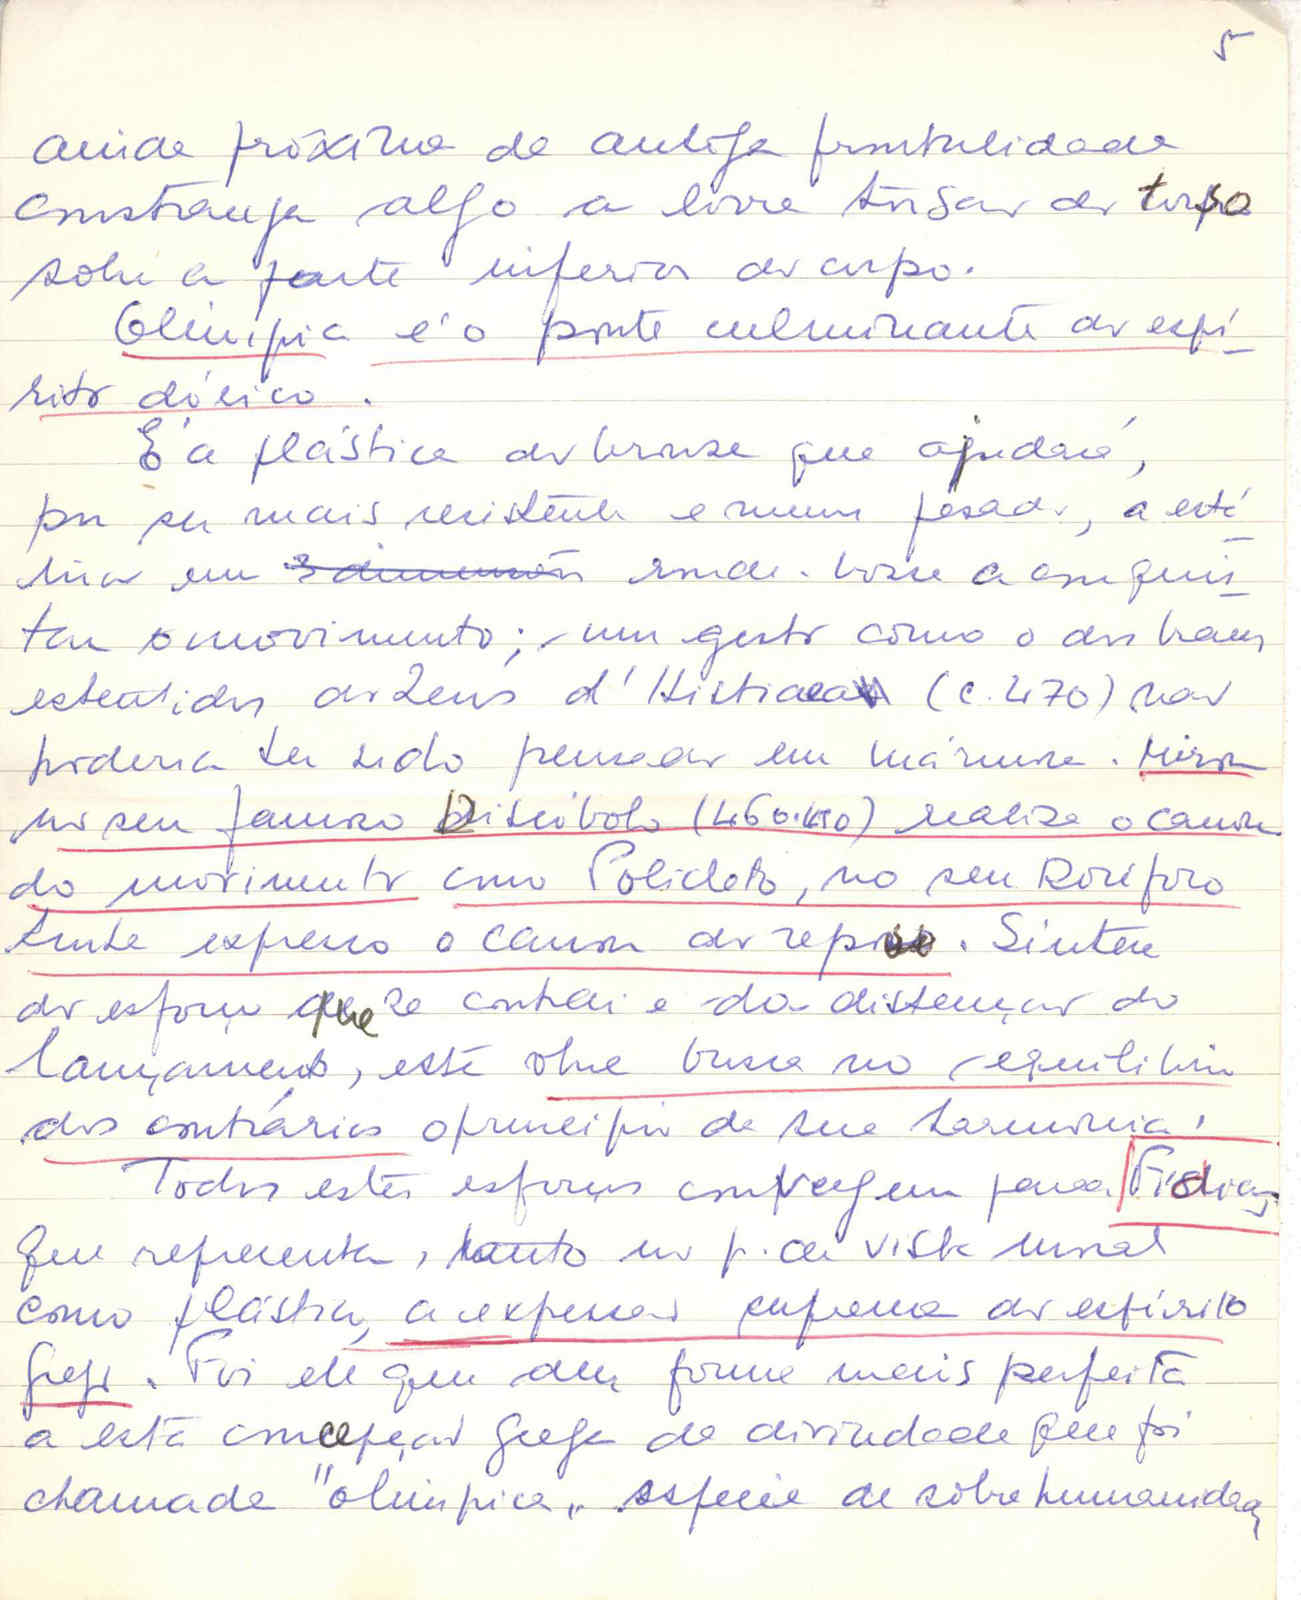 5
ainda próxima da antiga frontalidade
constranja algo a livre torsão do torso
sobre a parte inferior do corpo.
Olímpia é o ponto culminante do espí-
rito dórico.
É a plástica do bronze que ajudará,
por ser mais resistente e menos pesado, a está-
tua em 3 dimensões ronde-bosse a conquis-
tar o movimento; um gesto como o dos braços
estendidos do Zeus d'Histiaea (c. 470) não
poderia ter sido pensado em mármore. Miron
no seu famoso Discóbolo (460.450) realiza o canon
do movimento como Policleto, no seu Doríforo
tenta expresso o canon do repouso. Síntese
do esforço que se contrai e da distensão do
lançamento, esta obra busca no equilíbrio
dos contrários o princípio de sua harmonia.
Todos estes esforços convergem para Fídias,
que representa, tanto no p. de vista moral
como plástico, a expressão suprema do espírito
grego. Foi ele quem deu forma mais perfeita
a esta concepção grega da divindade que foi
chamada "olímpica", espécie de sôbrehumanidade,